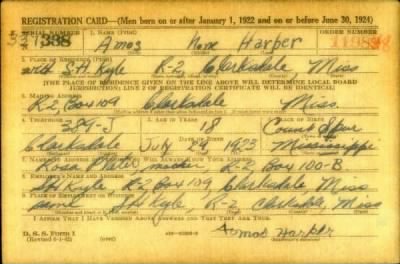 REGISTRATION CARD—(Men born on or after January 1, 1922 and on or before June 30, 1924)
SERIAL NUMBER 1. NAME (Print) ORDER NUMBER
338 Amos None Harper
2. PLACE OF RESIDENCE (Print)
with S.H. Kyle R-2, Clarksdale Miss
[THE PLACE OF RESIDENCE GIVEN ON THE LINE ABOVE WILL DETERMINE LOCAL BOARD
JURISDICTION; LINE 2 OF REGISTRATION CERTIFICATE WILL BE IDENTICAL]
3. MAILING ADDRESS
R-2 Box 109 Clarksdale Miss.
4. TELEPHONE 5. AGE IN YEARS 6. PLACE OF BIRTH
389-J 18
DATE OF BIRTH
Clarksdale July 29 1923 Mississippi
7. NAME AND ADDRESS OF PERSON WHO WILL ALWAYS KNOW YOUR ADDRESS
Rosa mother R-2 Box 100-B.
8. EMPLOYER'S NAME AND ADDRESS
SH Kyle, R-2 Box 109, Clarksdale, Miss
9. PLACE OF EMPLOYMENT OR BUSINESS
same SH Kyle, R-2 Clarksdale, Miss
I AFFIRM THAT I HAVE VERIFIED ABOVE ANSWERS AND THAT THEY ARE TRUE.
D. S. S. Form 1
(Revised 6-1-42) (over)
Amos Harper